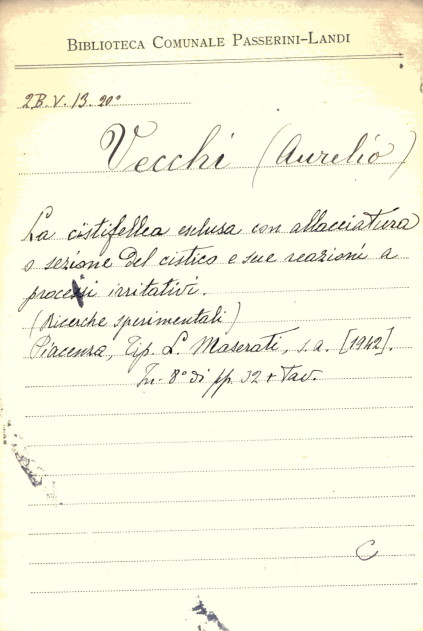 BIBLIOTECA COMUNALE PASSERINI-LANDI
2B.V.13.20°
Vecchi (Aurelio)
La cistifellea esclusa con allacciatura
o sezione del cistico e sue reazioni a
processi irritativi.
(Ricerche sperimentali)
Piacenza, Tip. L. Maserati, s.a. [1942].
In-8° di pp. 32 + Tav.
C